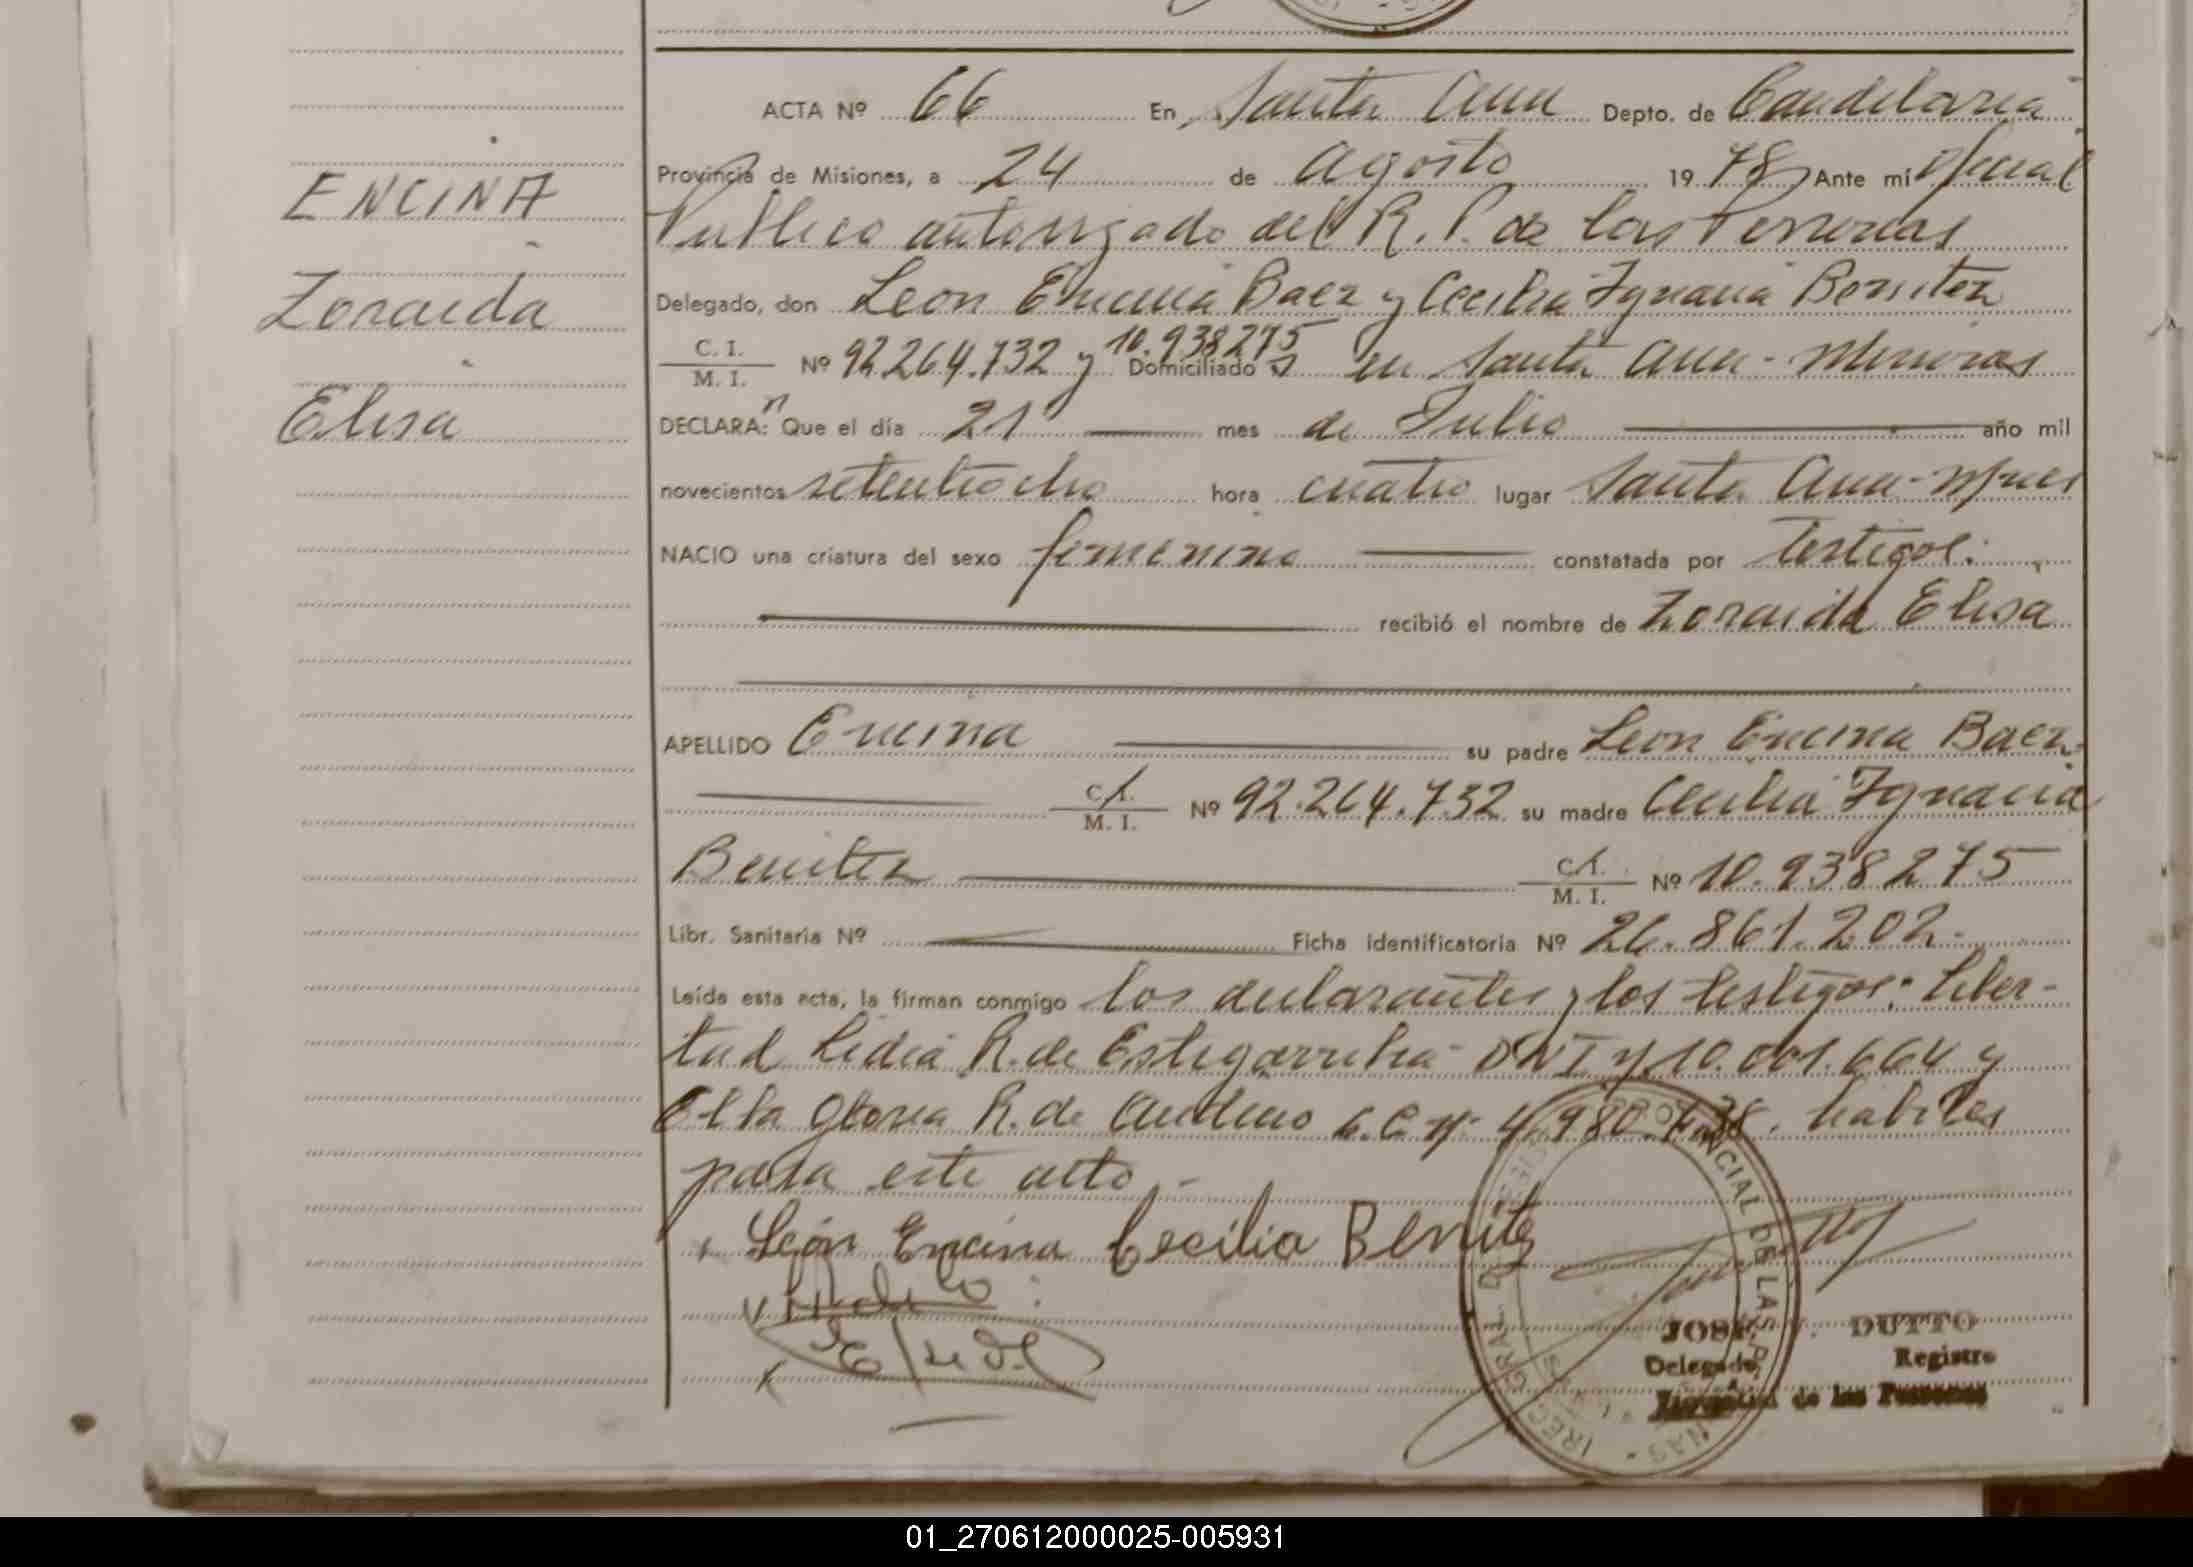 ACTA Nº 66 En Santa Ana Depto. de Candelaria
Provincia de Misiones, a 24 de Agosto 1978 Ante mí Oficial
Publico autorizado del R. P. de las Personas
Delegado, don Leon Encina Baez y Cecilia Ignacia Benitez
C. I. / M. I. Nº 92.264.732 y 10.938275 Domiciliado s en Santa Ana - Misiones
DECLARAn: Que el día 21 mes de Julio año mil
novecientos setentiocho hora cuatro lugar Santa Ana - Mnes
NACIO una criatura del sexo femenino constatada por testigos.
recibió el nombre de Zoraida Elisa
APELLIDO Encina su padre Leon Encina Baez
C. I. / M. I. Nº 92.264.732 su madre Cecilia Ignacia
Benitez C. I. / M. I. Nº 10.938275
Libr. Sanitaria Nº Ficha identificatoria Nº 26.861.202.
Leída esta acta, la firman conmigo los declarantes y los testigos: Liber-
tad Lidia R. de Estigarribia - DNI nº 10.001.664 y
Elba Gloria R. de Andino L.C. nº 4.980. habiles
para este acto -
León Encina Cecilia Benitez
ENCINA
Zoraida
Elisa
JOSE DUTTO
Delegado Registro
de las Personas
PROVINCIAL DE LAS PERSONAS
01_270612000025-005931